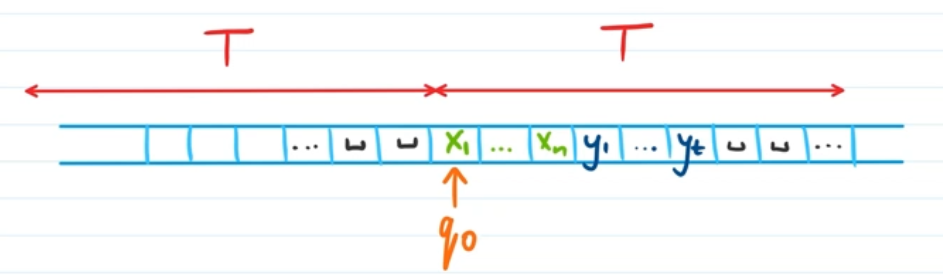 T T
... ␣ ␣ x₁ ... xₙ y₁ ... yₜ ␣ ␣ ...
q₀